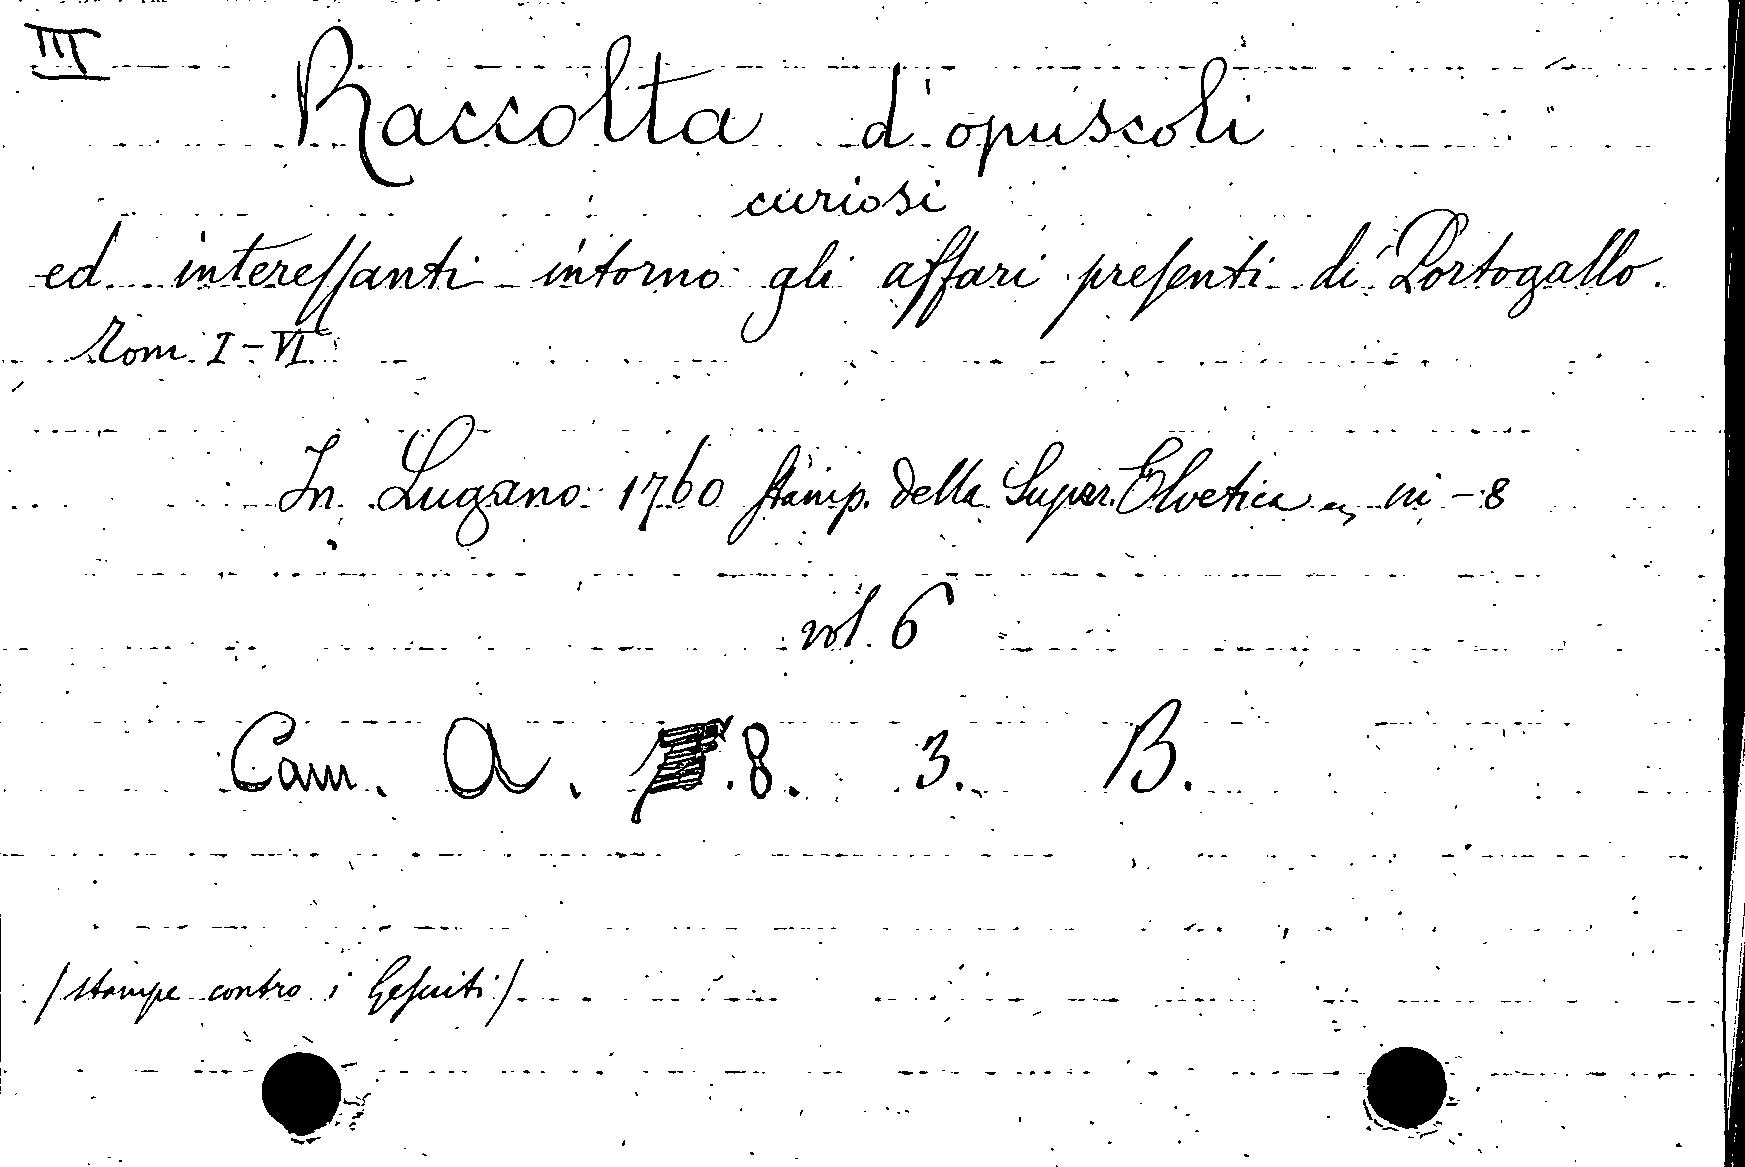 III
Raccolta d'opuscoli
curiosi
ed intereſſanti intorno gli affari preſenti di Portogallo.
Tom. I-VI
In Lugano 1760 ſtamp. della Super. Elvetica in-8
vol. 6
Cam. A. .8. 3. B.
/stampe contro i Geſuiti/